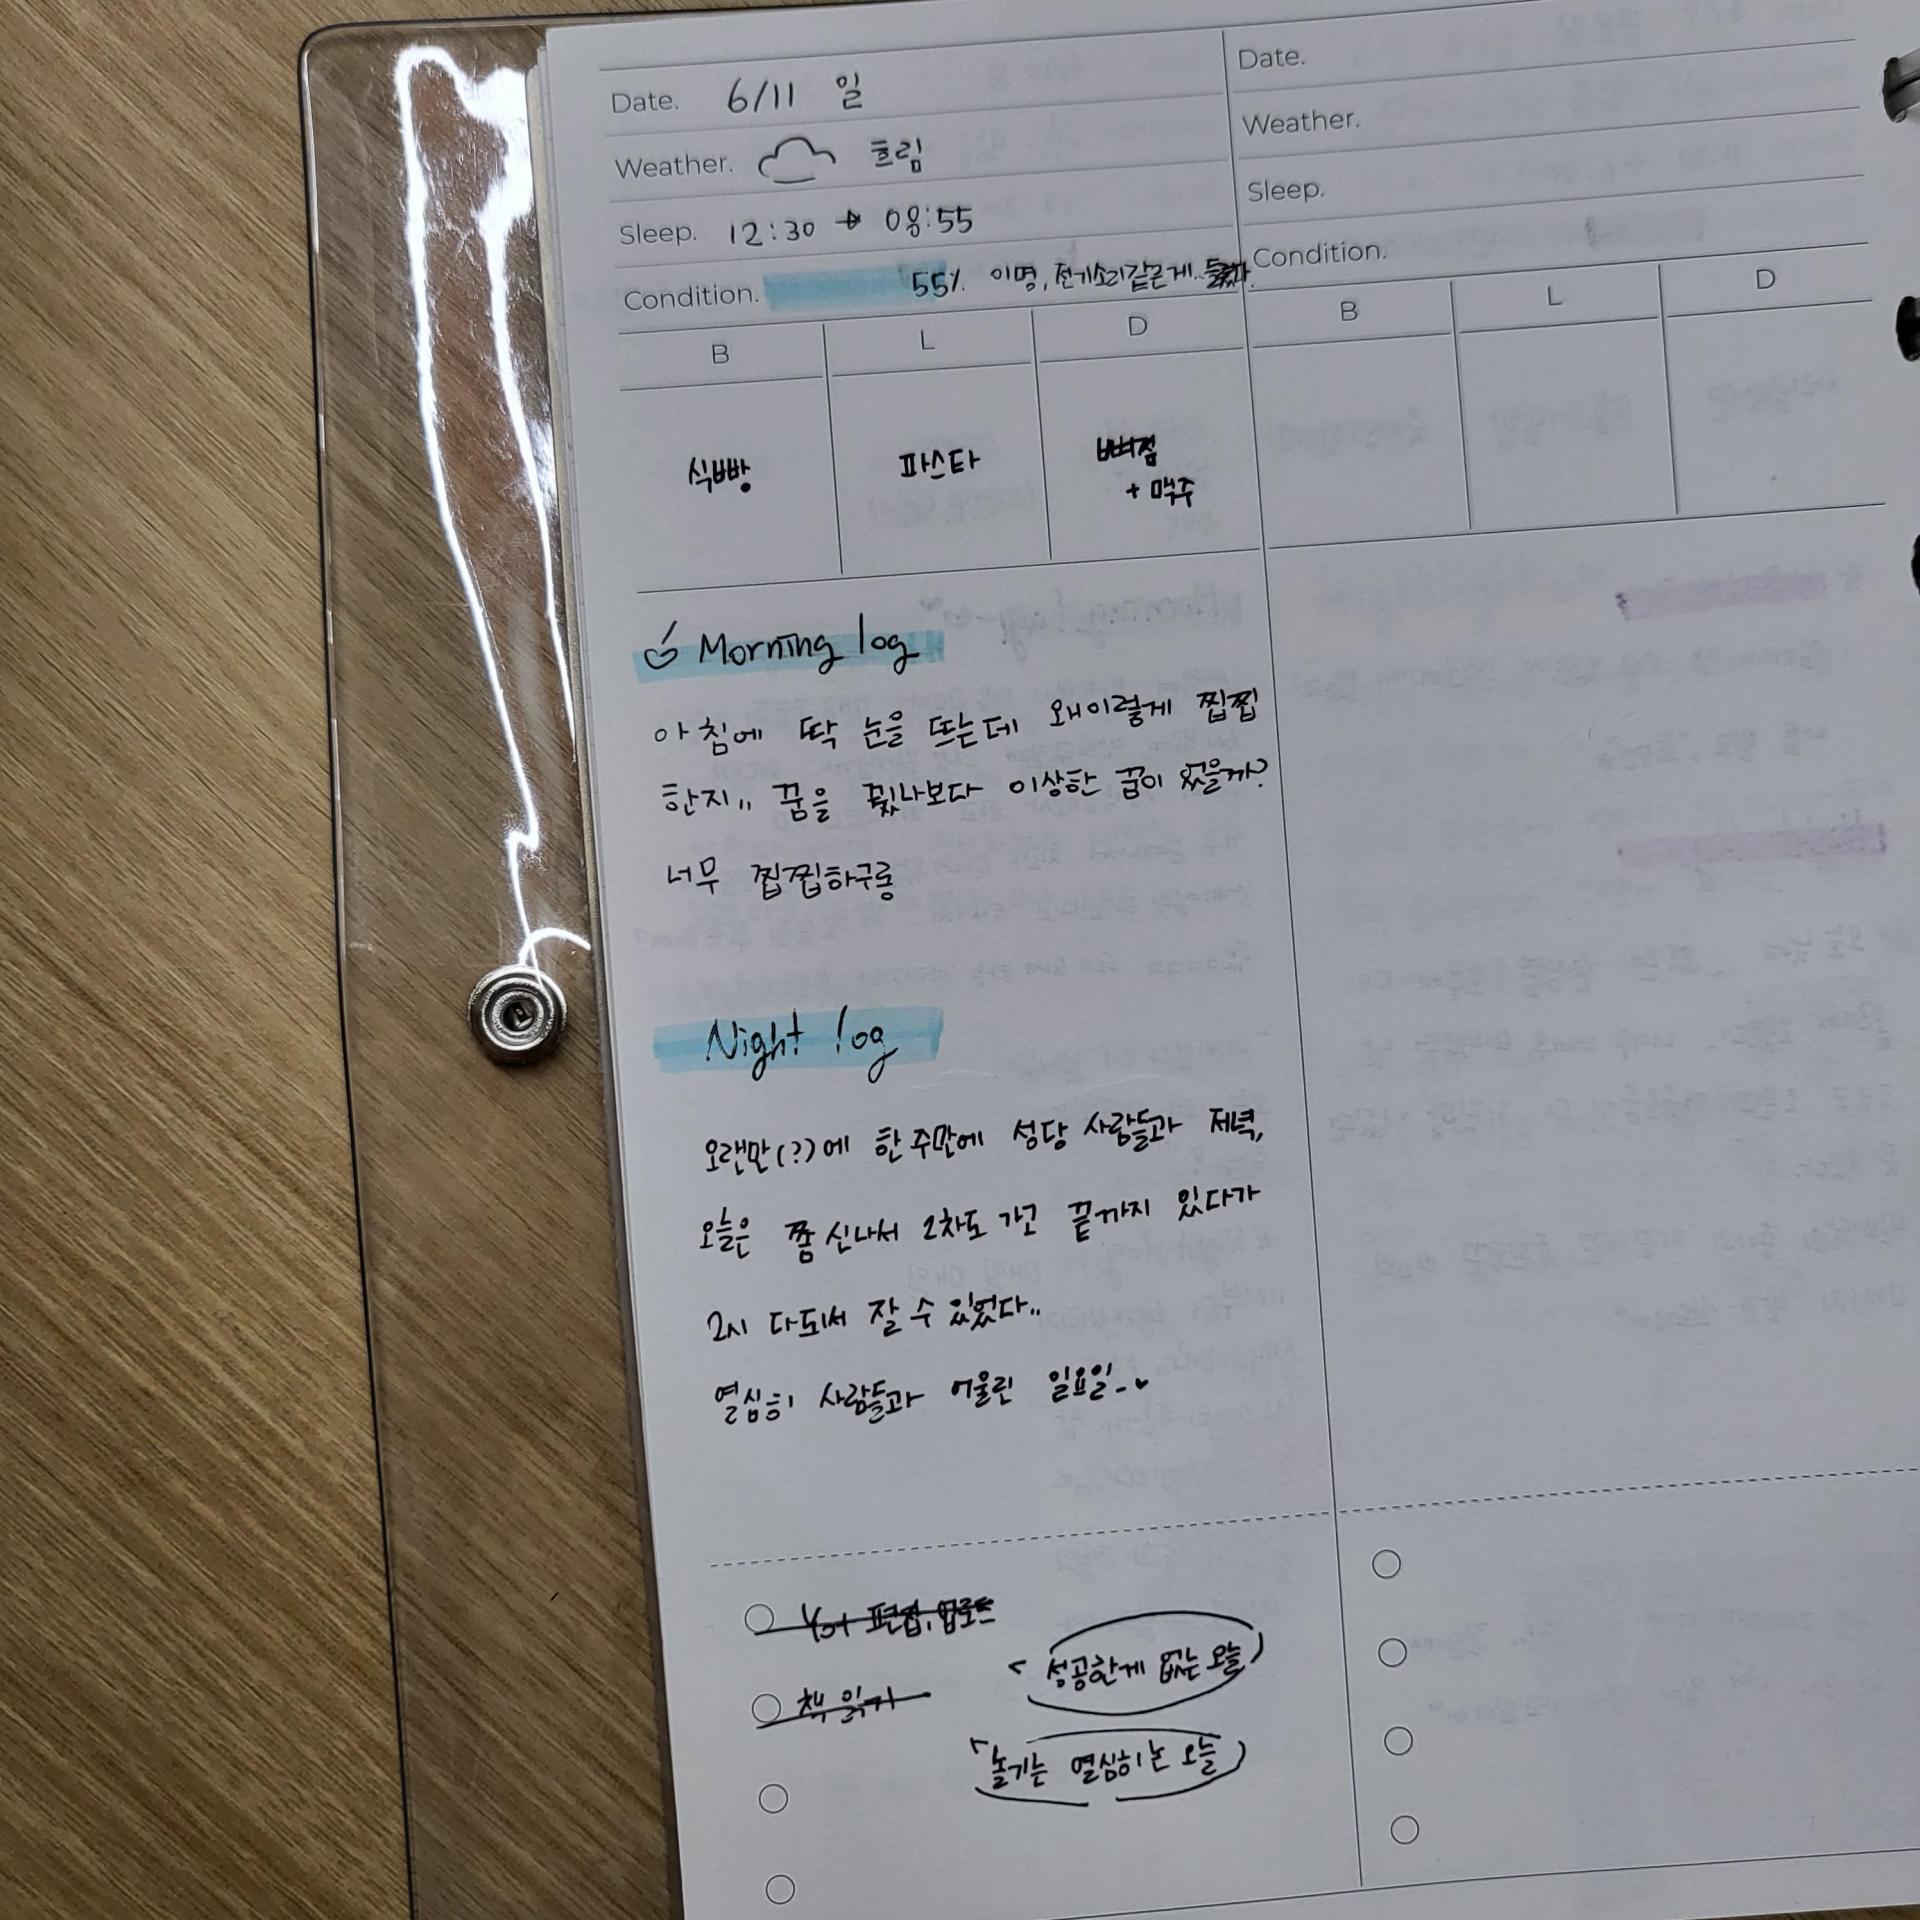 Date. 6/11 일
Weather. 흐림
Sleep. 12:30 → 08:55
Condition. 55% 이명, 전기소리같은게..들렸다.
B L D
식빵 파스타 뼈찜
+ 맥주
Morning log
아침에 딱 눈을 뜨는데 왜이렇게 찝찝
한지,, 꿈을 꿨나보다 이상한 꿈이 었을까?
너무 찝찝하구롱
Night log
오랜만(?)에 한 주만에 성당 사람들과 저녁,
오늘은 쫌 신나서 2차도 가고 끝까지 있다가
2시 다되서 잘 수 있었다..
열심히 사람들과 어울린 일요일
편집, 업로드
책 읽기
성공한게 없는 오늘
놀기는 열심히 논 오늘
Date.
Weather.
Sleep.
Condition.
B L D